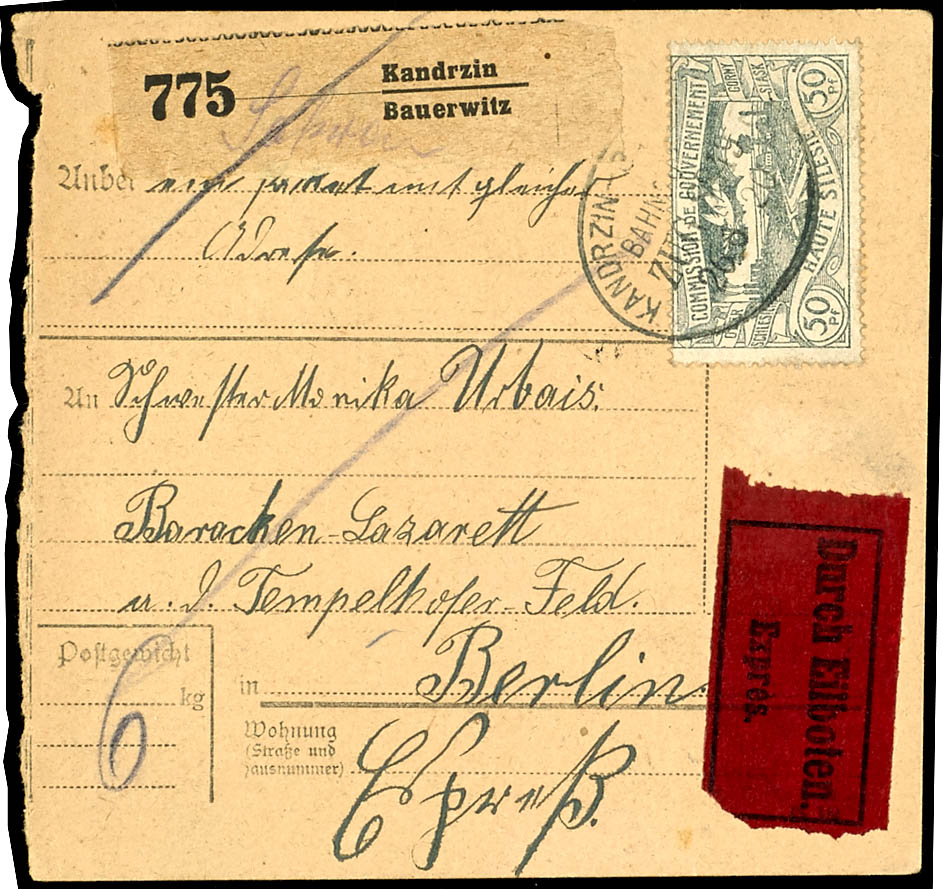 775
Kandrzin
Bauerwitz
Anbei ein paket mit gleicher
Adresse.
KANDRZIN-
BAHN
ZUG
COMMISSION DE GOUVERNEMENT
HAUTE SILESIE
GORNY
ŚLĄSK
50 Pf
50 Pf
An Schwester Monika Urbais.
Baracken-Lazarett
a. d. Tempelhofer-Feld.
in Berlin.
Postgewicht
kg
6
Wohnung
(Straße und
ausnummer)
Expreß.
Durch Eilboten.
Exprès.